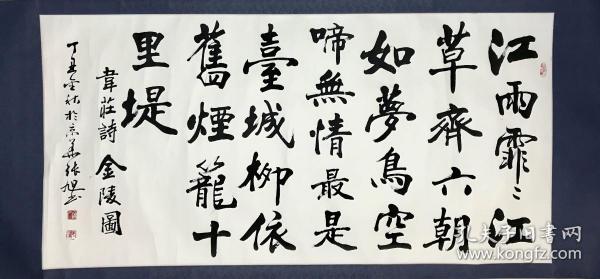 江雨霏〻江
草齊六朝
如夢鳥空
啼無情最是
臺城柳依
舊煙籠十
里堤
韋莊詩金陵圖
丁丑金秋於京華張旭書
孔夫子旧书网
www.kongfz.com